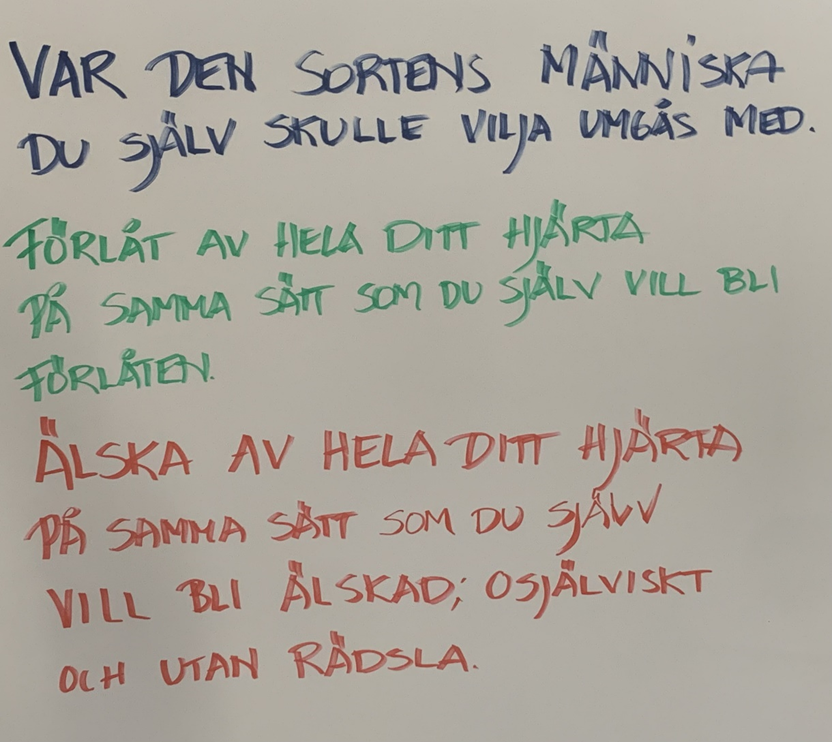 VAR DEN SORTENS MÄNNISKA
DU SJÄLV SKULLE VILJA UMGÅS MED.
FÖRLÅT AV HELA DITT HJÄRTA
PÅ SAMMA SÄTT SOM DU SJÄLV VILL BLI
FÖRLÅTEN.
ÄLSKA AV HELA DITT HJÄRTA
PÅ SAMMA SÄTT SOM DU SJÄLV
VILL BLI ÄLSKAD; OSJÄLVISKT
OCH UTAN RÄDSLA.